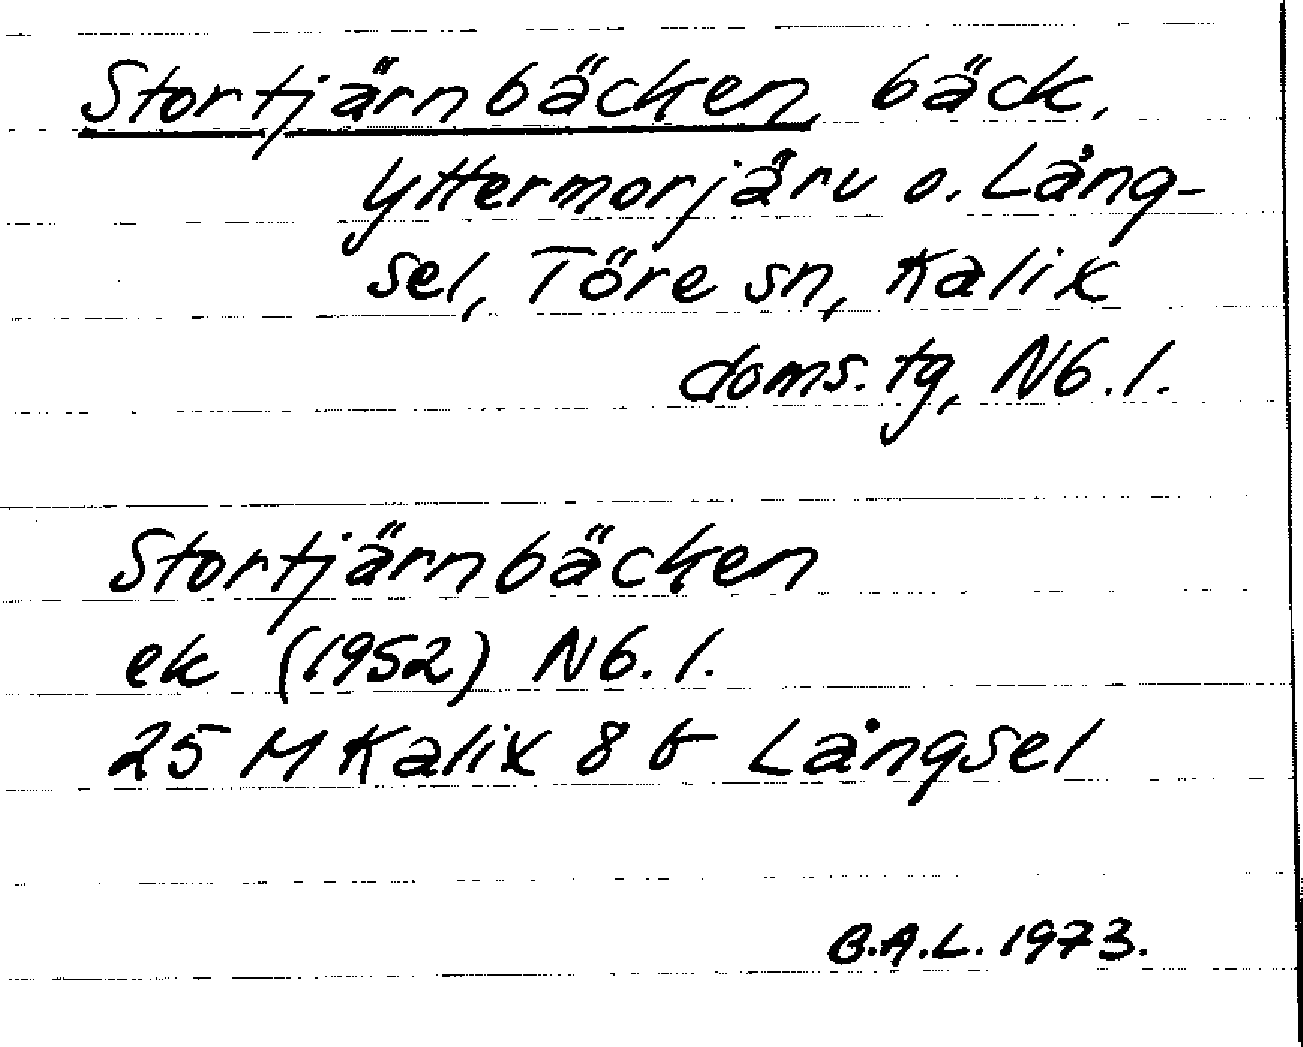 Stortjärnbäcken, bäck,
Yttermorjärv o. Lång-
sel, Töre sn, Kalix
doms. tg, Nb. l.
Stortjärnbäcken
ek (1952) Nb. l.
25 M Kalix 8 b Långsel
B.A.L. 1973.